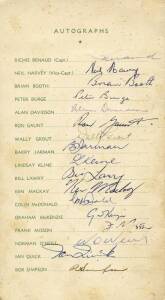 AUTOGRAPHS
RICHIE BENAUD (Capt.) R Benaud
NEIL HARVEY (Vice-Capt.) Neil Harvey
BRIAN BOOTH: Brian Booth
PETER BURGE Peter Burge
ALAN DAVIDSON Alan Davidson
RON GAUNT Ron Gaunt
WALLY GROUT Wally Grout
BARRY JARMAN BJarman
LINDSAY KLINE LKline
BILL LAWRY Bill Lawry
KEN MACKAY Ken Mackay
COLIN McDONALD
GRAHAM McKENZIE G McKenzie
FRANK MISSON F. Misson
NORMAN O'NEILL N O'Neill
IAN QUICK Ian Quick
BOB SIMPSON R Simpson